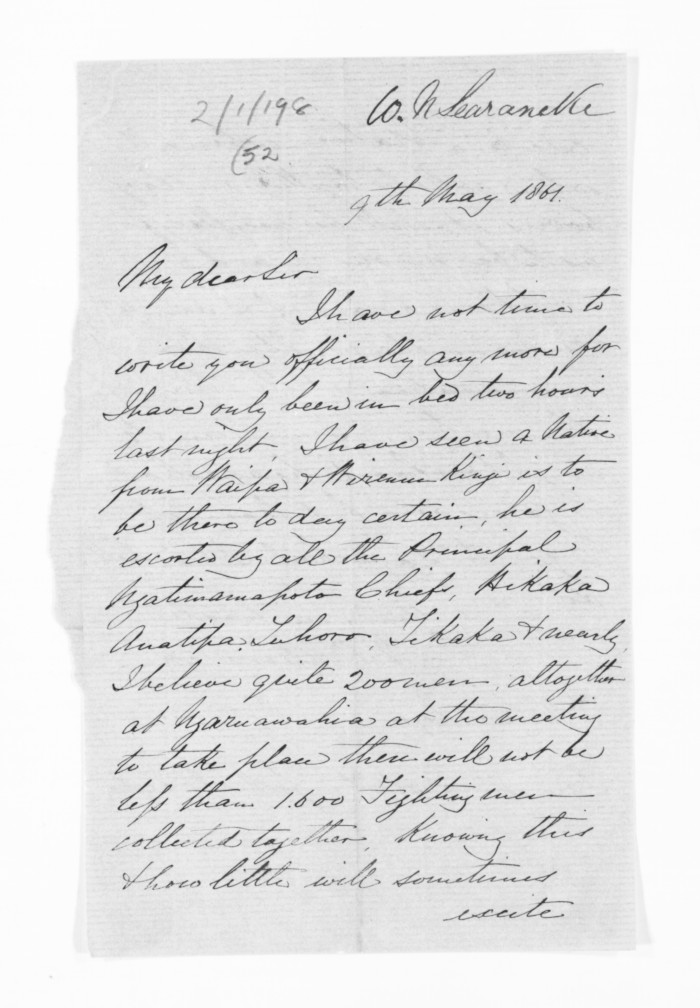 2/1/198
(52
W. N Searancke
9th May 1861.
My dear Sir
I have not time to
write you officially any more for
I have only been in bed two hours
last night. I have seen a Native
from Waipa & Wiremu Kingi is to
be there to day certain, he is
escorted by all the Principal
Ngatimamapoto Chiefs, Hikaka
Anatipa, Tuhoro, Tikaka & nearly,
I believe quite 200 men, altogether
at Ngaruawahia at the meeting
to take place there will not be
less than 1.600 Fighting men
collected together. Knowing this
& how little will sometimes
excite